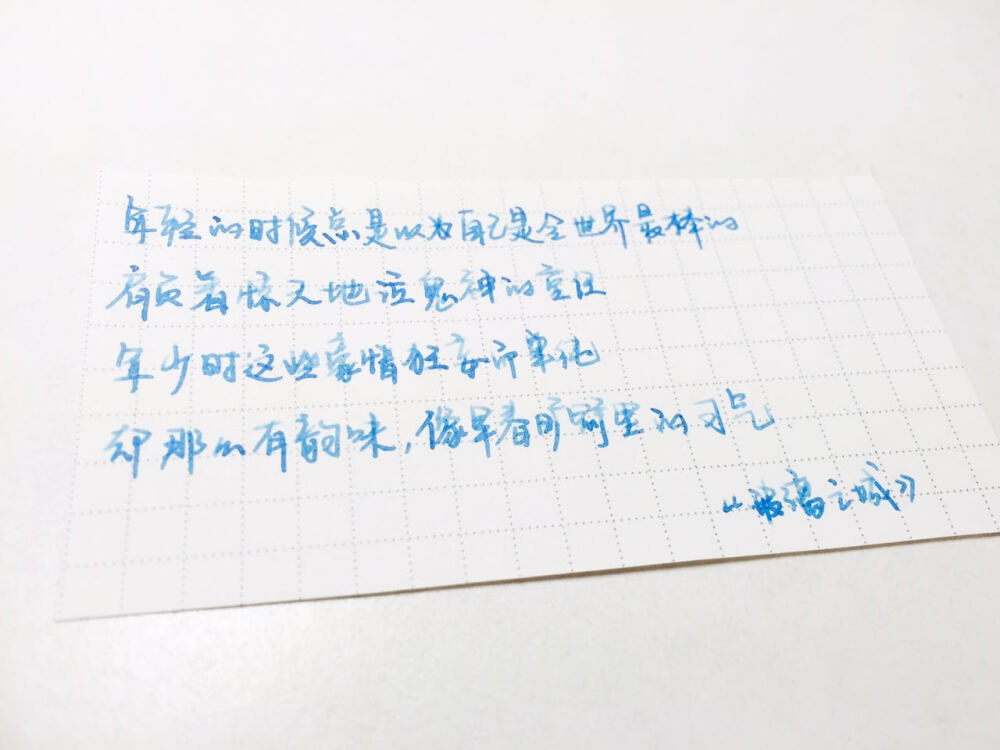 年轻的时候总是以为自己是全世界最棒的
肩负着惊天地泣鬼神的重任
年少时这些豪情狂妄而单纯
却那么有韵味,像早春时雨里的习气
《玻璃之城》